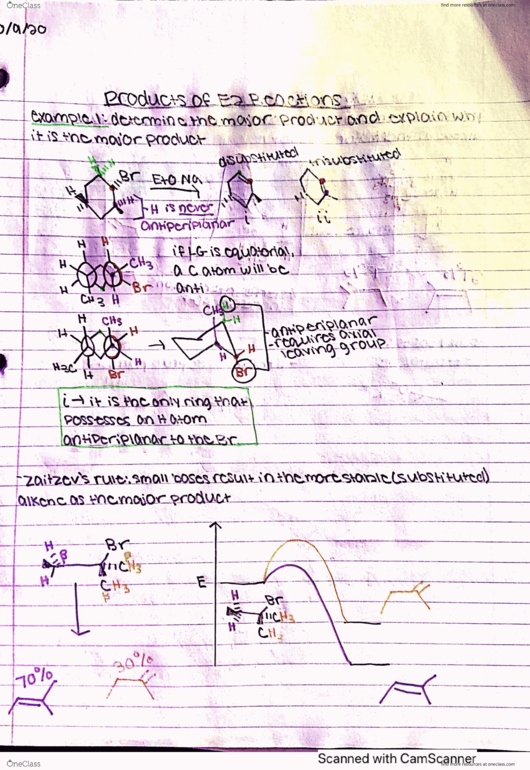 OneClass
find more resources at oneclass.com
0/9/20
Products of E2 Reactions
Example 1: determine the major product and explain why
it is the major product
disubstituted
trisubstituted
H
H
Br
EtO Na
H
"H
-H is never
antiperiplanar
i
ii
H H
H
CH3
H
Br
CH3 H
if LG is equatorial,
a C atom will be
anti
H CH3
H
H
H3C
H
Br
CH3
H
H
H
H
Br
-antiperiplanar
-requires axial
leaving group
i → it is the only ring that
possesses an H atom
antiperiplanar to the Br
-Zaitzev's rule: small bases result in the more stable (substituted)
alkene as the major product
H
β
H
Br
CH3
CH3
E
H
H
Br
CH3
CH3
70%
30%
Scanned with CamScanner
OneClass
find more resources at oneclass.com